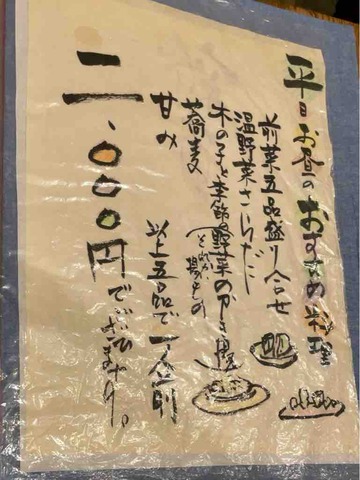 平日お昼のおすすめ料理
前菜五品盛り合せ
温野菜さらだ
木の子と季節野菜のかき揚
蕎麦
甘み
以上五品で一人前
二、000円でございます。